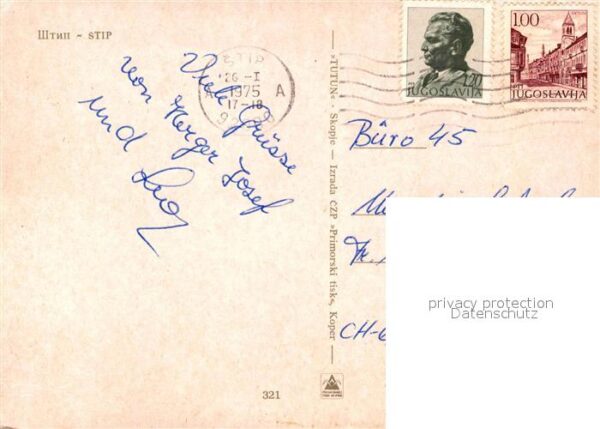 Штип ~ STIP
26 -I
1975
17-18
A A
1.20
JUGOSLAVIJA
1.00
JUGOSLAVIJA
Viele Grüsse
von Herger Josef
und
»TUTUN« - Skopje — Izrada ČZP »Primorski tisk«, Koper
Büro 45
Fr.
CH-6
privacy protection
Datenschutz
321